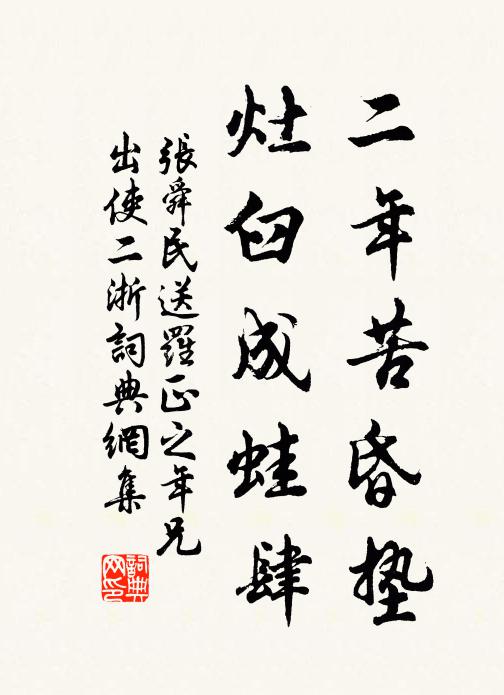 二年苦昏垫
灶臼成蛙肆
張舜民送羅正之年兄
出使二浙詞典網集
詞典網印